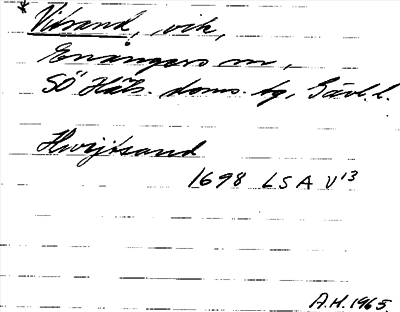 * Vitsand, vik,
Enångers sn,
SÖ Häls. doms. tg, Gävl.l.
Hwijtsand
1698 LSA V¹³
A.H. 1965.